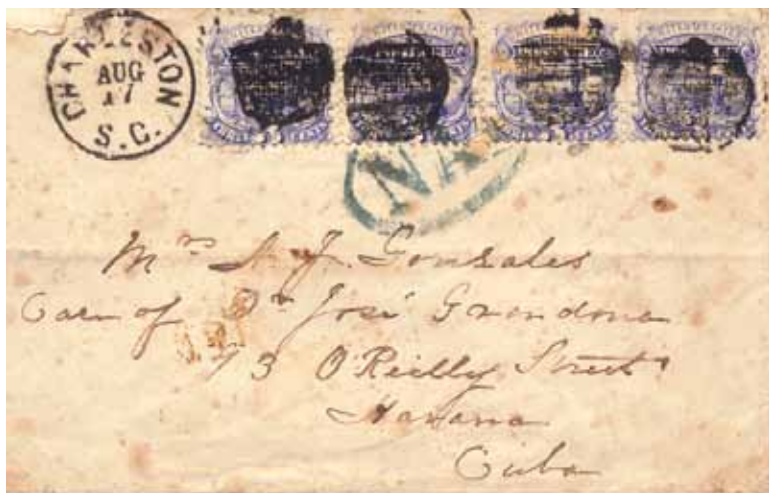 CHARLESTON
AUG
17
S.C.
NA
Mrs A. J. Gonzales
Care of Dr José Grandona
93 O'Reilly Street
Havana
Cuba